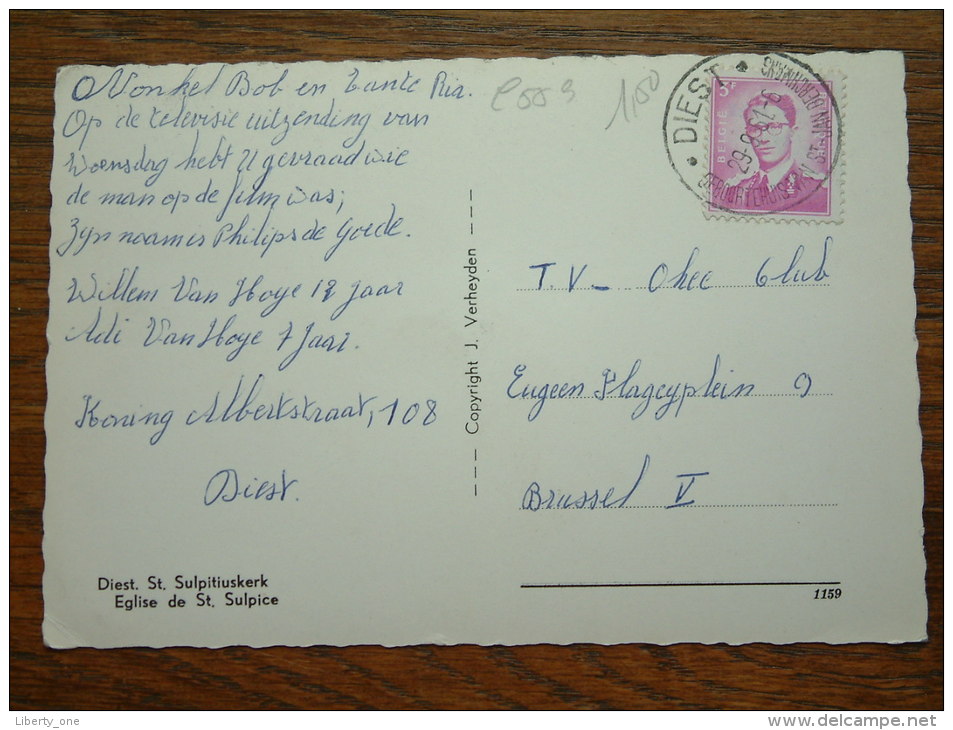 Nonkel Bob en Tante Ria.
Op de televisie uitzending van
Woensdag hebt U gevraad wie
de man op de film was;
Zijn naam is Philips de Goede.
Willem Van Hoye 12 jaar
Adi Van Hoye 7 Jaar.
Koning Albertstraat, 108
Diest.
Diest. St. Sulpitiuskerk
Eglise de St. Sulpice
--- Copyright J. Verheyden ---
100
DIEST
3F
BELGIË
T.V- Ohee Club
Eugeen Flageyplein 9
Brussel V
1159
Liberty_one
www.delcampe.net